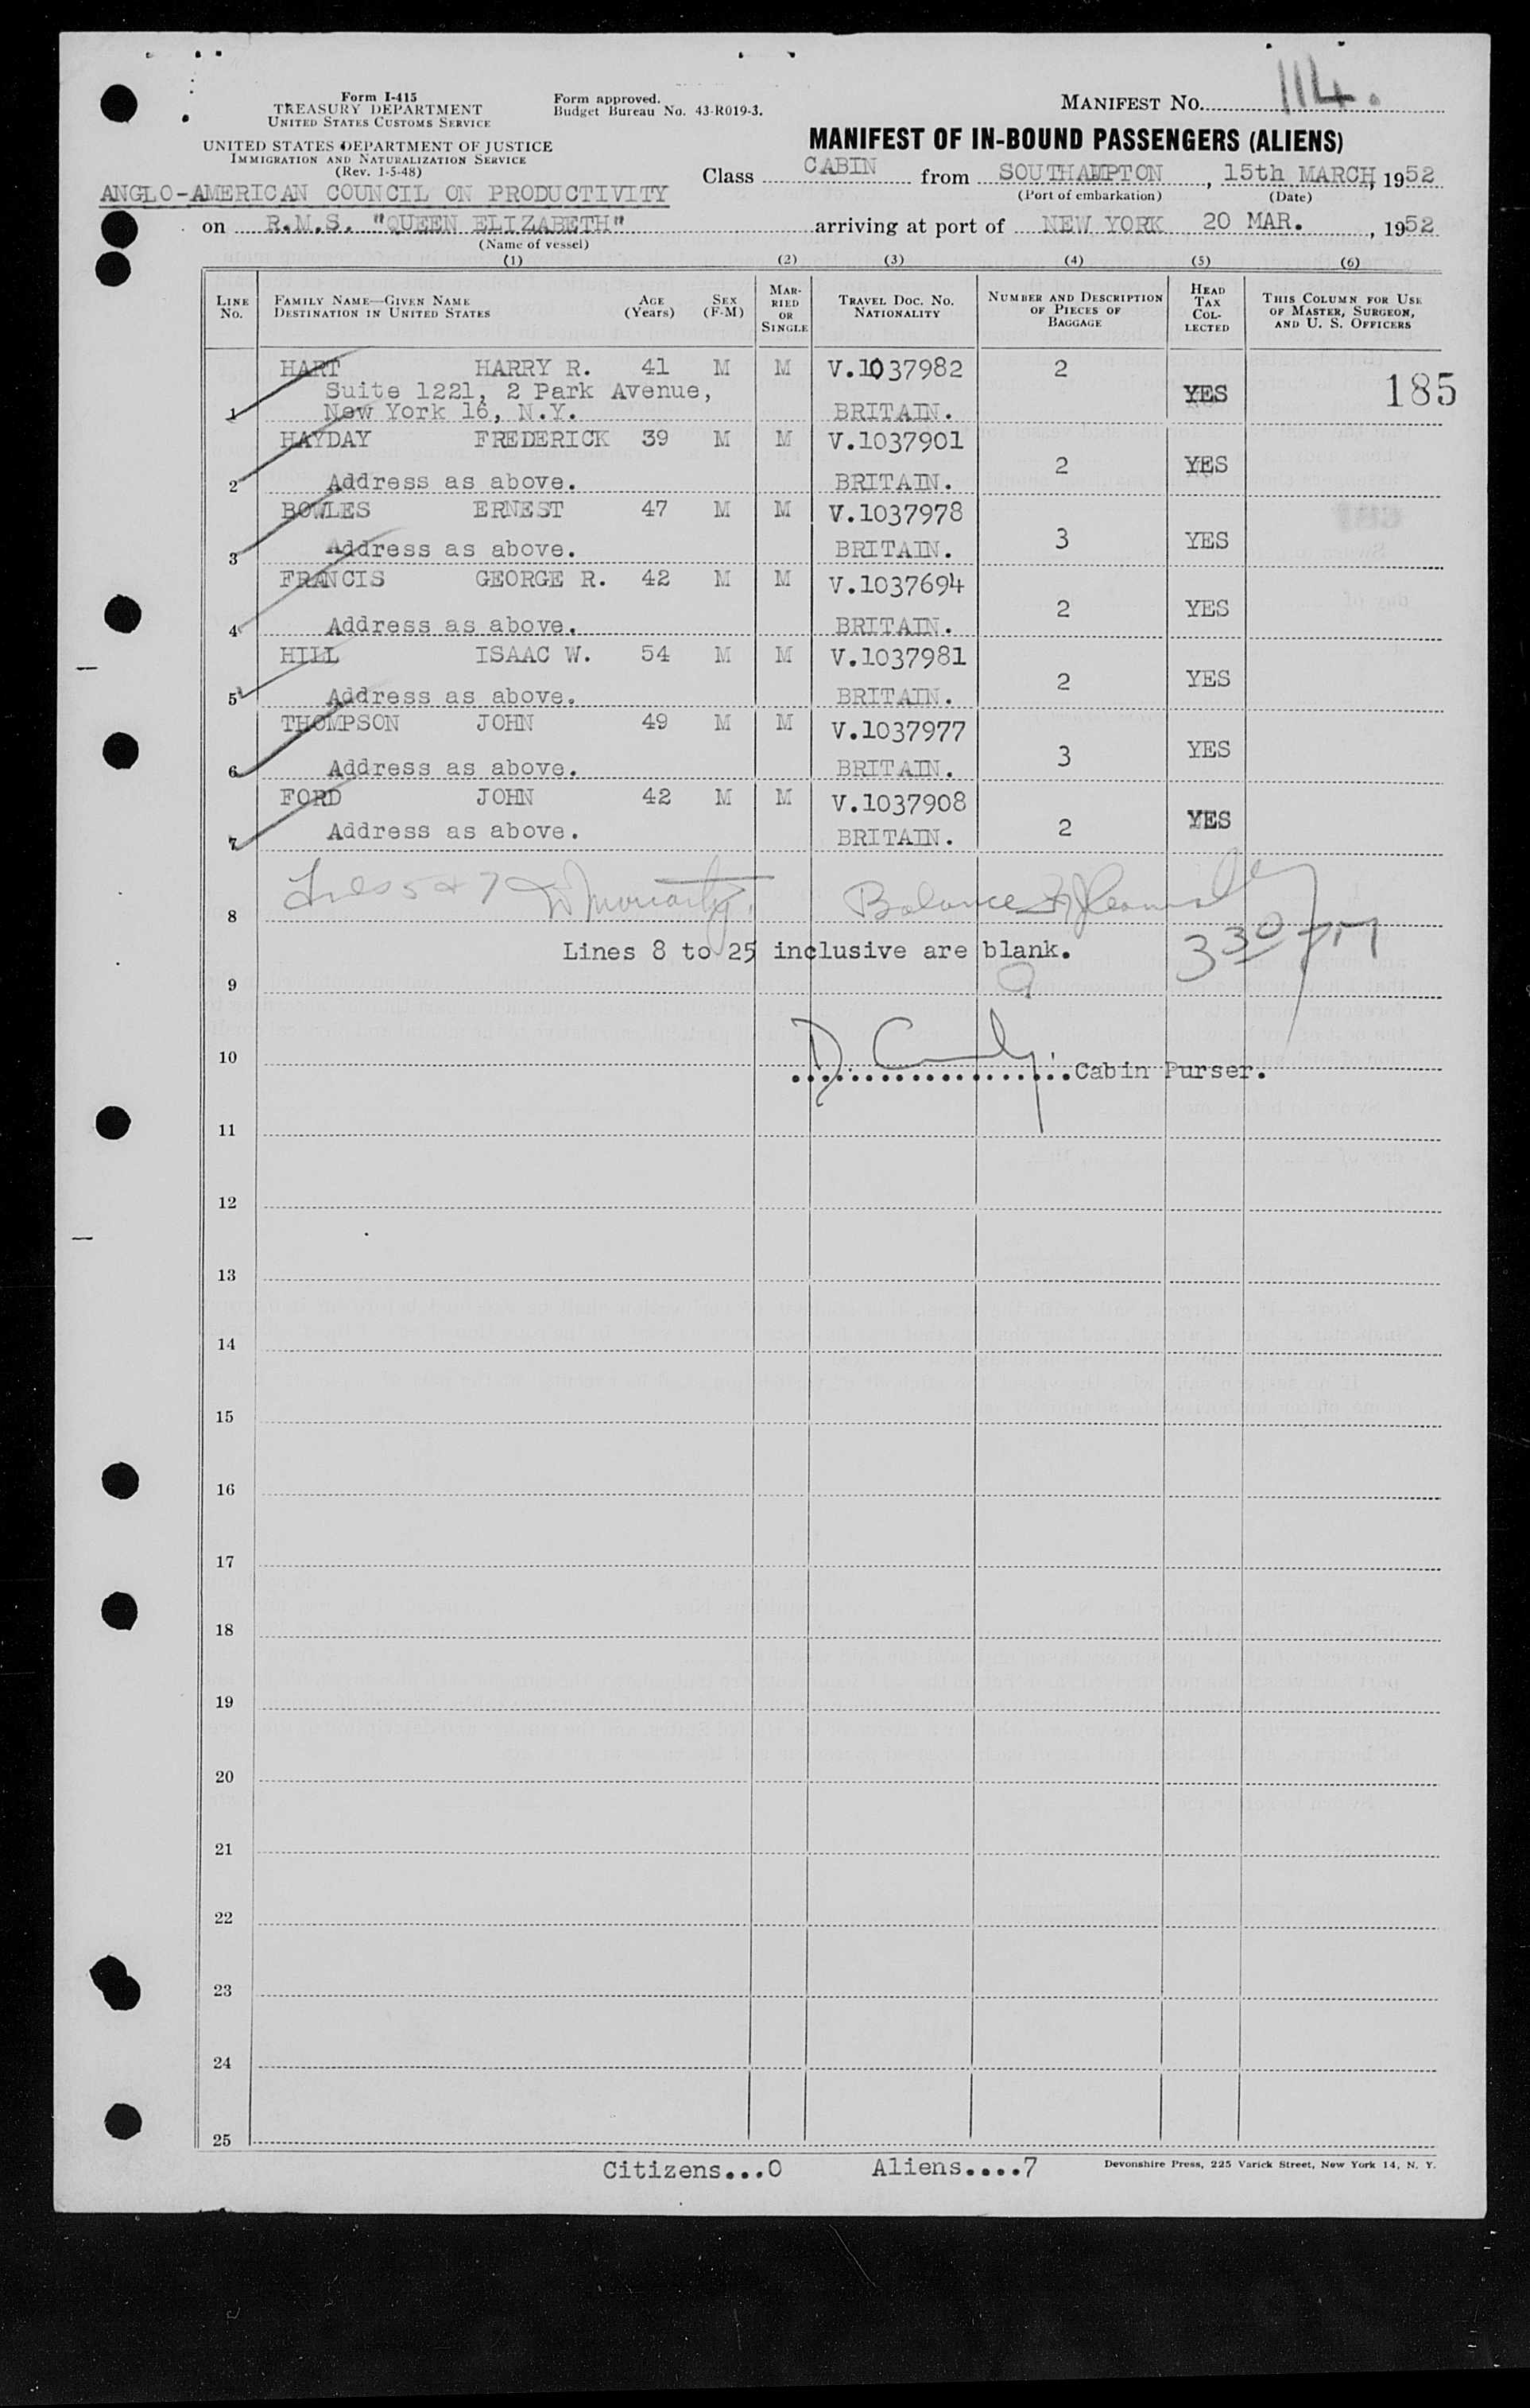 Form I-415
TREASURY DEPARTMENT
UNITED STATES CUSTOMS SERVICE
Form approved.
Budget Bureau No. 43-R019-3.
MANIFEST NO. 114.
UNITED STATES DEPARTMENT OF JUSTICE
IMMIGRATION AND NATURALIZATION SERVICE
(Rev. 1-5-48)
MANIFEST OF IN-BOUND PASSENGERS (ALIENS)
ANGLO-AMERICAN COUNCIL ON PRODUCTIVITY
Class CABIN from SOUTHAMPTON, 15th MARCH, 1952
(Port of embarkation) (Date)
on R.M.S. "QUEEN ELIZABETH" arriving at port of NEW YORK 20 MAR., 1952
(Name of vessel)
(1) (2) (3) (4) (5) (6)
LINE NO. FAMILY NAME—GIVEN NAME DESTINATION IN UNITED STATES AGE (Years) SEX (F-M) MARRIED OR SINGLE TRAVEL DOC. NO. NATIONALITY NUMBER AND DESCRIPTION OF PIECES OF BAGGAGE HEAD TAX COLLECTED THIS COLUMN FOR USE OF MASTER, SURGEON, AND U. S. OFFICERS
HART HARRY R. 41 M M V.1037982 2
Suite 1221, 2 Park Avenue, YES 185
1 New York 16, N.Y. BRITAIN.
HAYDAY FREDERICK 39 M M V.1037901
2 YES
2 Address as above. BRITAIN.
BOWLES ERNEST 47 M M V.1037978
3 Address as above. BRITAIN. 3 YES
FRANCIS GEORGE R. 42 M M V.1037694
2 YES
4 Address as above. BRITAIN.
HILL ISAAC W. 54 M M V.1037981
2 YES
5 Address as above. BRITAIN.
THOMPSON JOHN 49 M M V.1037977
3 YES
6 Address as above. BRITAIN.
FORD JOHN 42 M M V.1037908
2 YES
7 Address as above. BRITAIN.
8 5 & 7 Moriarty. Balance
Lines 8 to 25 inclusive are blank. 3 30 PM
9
10 D. Cabin Purser.
11
12
13
14
15
16
17
18
19
20
21
22
23
24
25
Citizens...0 Aliens....7 Devonshire Press, 225 Varick Street, New York 14, N. Y.